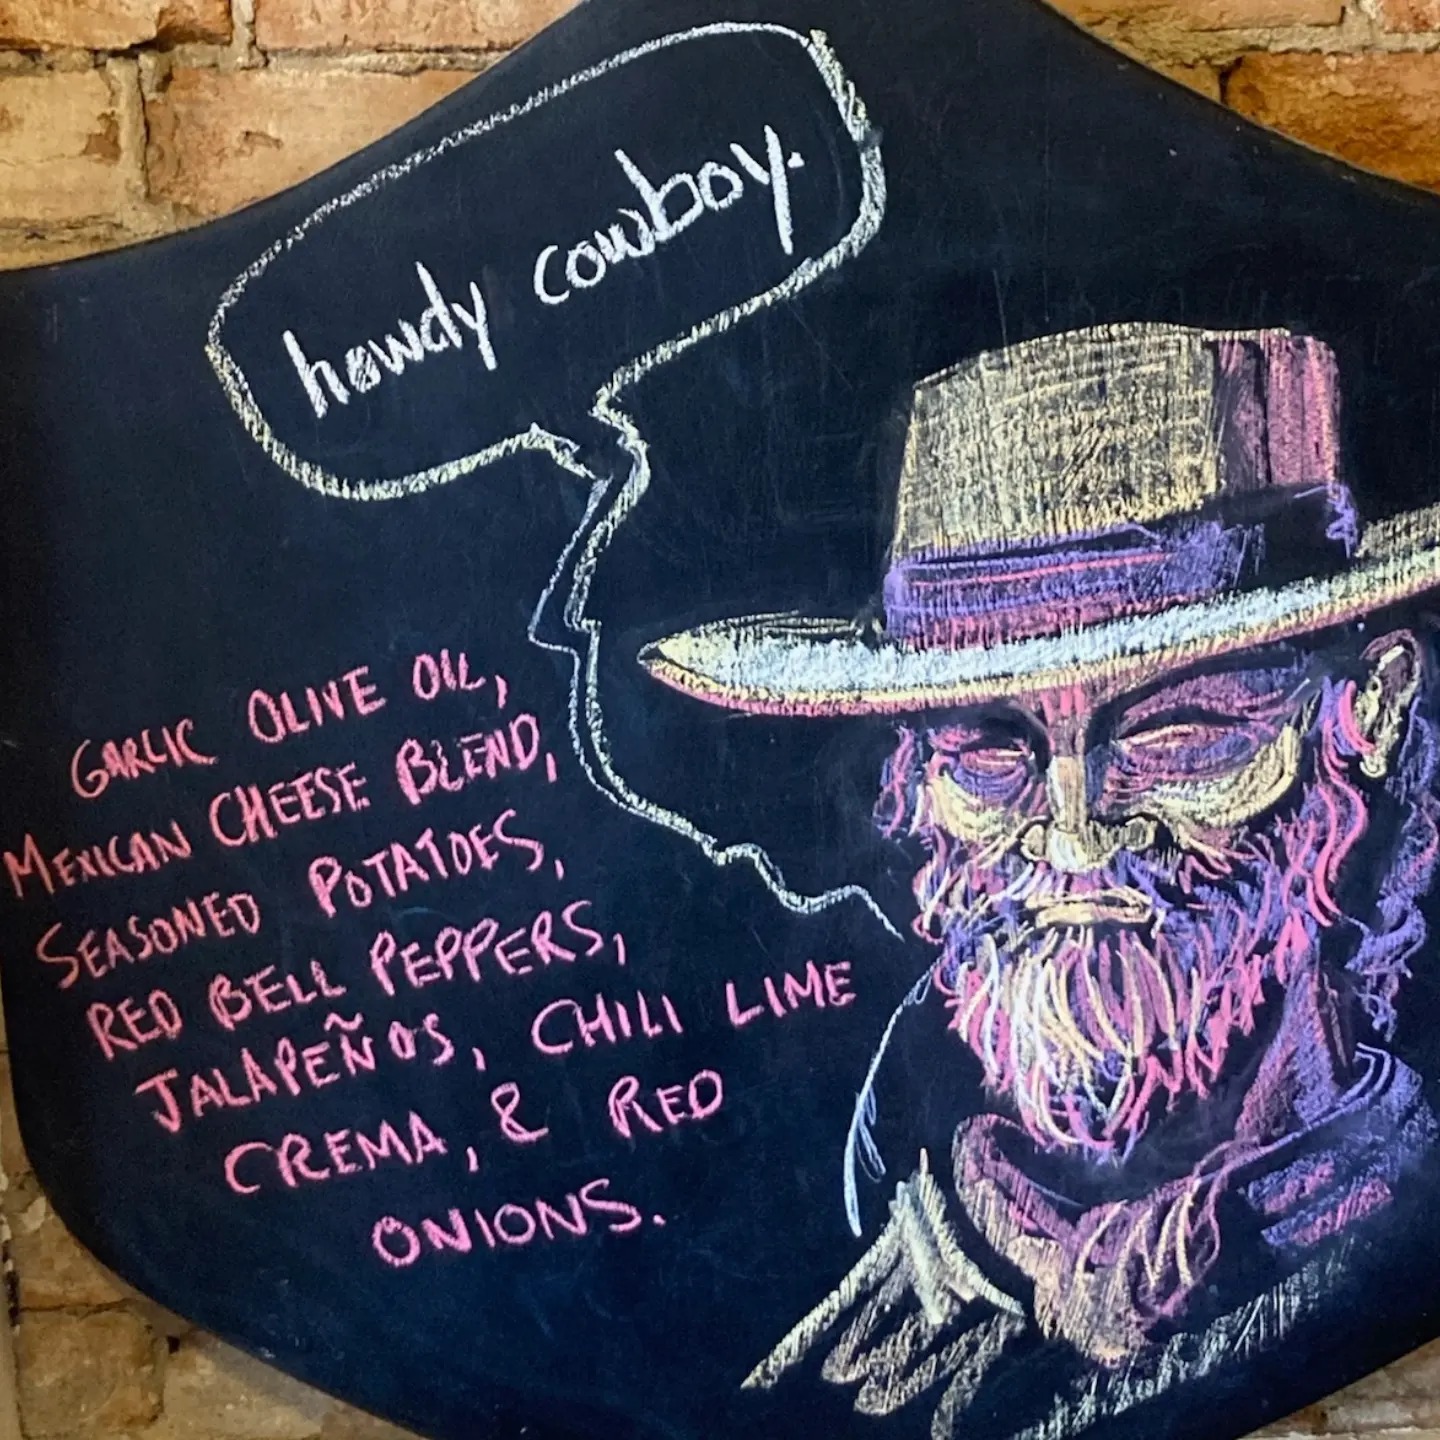 howdy cowboy.
GARLIC OLIVE OIL,
MEXICAN CHEESE BLEND,
SEASONED POTATOES,
RED BELL PEPPERS,
JALAPEÑOS, CHILI LIME
CREMA, & RED
ONIONS.